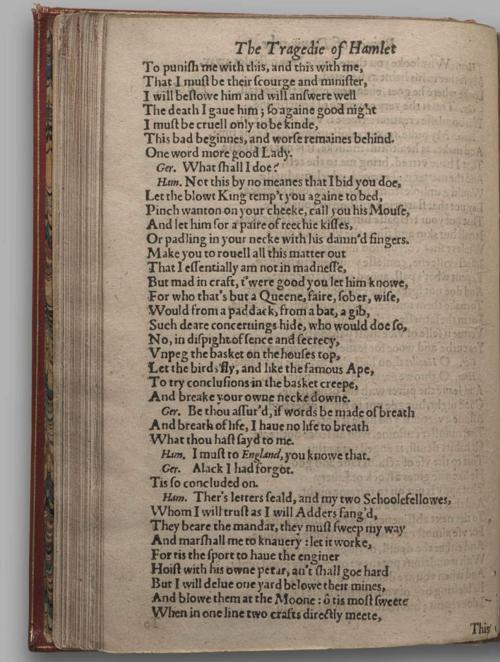 The Tragedie of Hamlet
To puniſh me with this, and this with me,
That I muſt be their ſcourge and miniſter,
I will beſtowe him and will anſwere well
The death I gaue him; ſo againe good night
I muſt be cruell only to be kinde,
This bad beginnes, and worſe remaines behind.
One word more good Lady.
Ger. What ſhall I doe?
Ham. Not this by no meanes that I bid you doe,
Let the blowt King temp't you againe to bed,
Pinch wanton on your cheeke, call you his Mouſe,
And let him for a paire of reechie kiſſes,
Or padling in your necke with his damn'd fingers.
Make you to rouell all this matter out
That I eſſentially am not in madneſſe,
But mad in craft, t'were good you let him knowe,
For who that's but a Queene, faire, ſober, wiſe,
Would from a paddack, from a bat, a gib,
Such deare concernings hide, who would doe ſo,
No, in diſpight of ſence and ſecrecy,
Vnpeg the basket on the houſes top,
Let the birds fly, and like the famous Ape,
To try concluſions in the basket creepe,
And breake your owne necke downe.
Ger. Be thou aſſur'd, if words be made of breath
And breath of life, I haue no life to breath
What thou haſt ſayd to me.
Ham. I muſt to England, you knowe that.
Ger. Alack I had forgot.
Tis ſo concluded on.
Ham. Ther's letters ſeald, and my two Schoolefellowes,
Whom I will truſt as I will Adders fang'd,
They beare the mandat, they muſt ſweep my way
And marſhall me to knauery: let it worke,
For tis the ſport to haue the enginer
Hoiſt with his owne petar, an't ſhall goe hard
But I will delue one yard belowe their mines,
And blowe them at the Moone: ô tis moſt ſweete
When in one line two crafts directly meete,
This